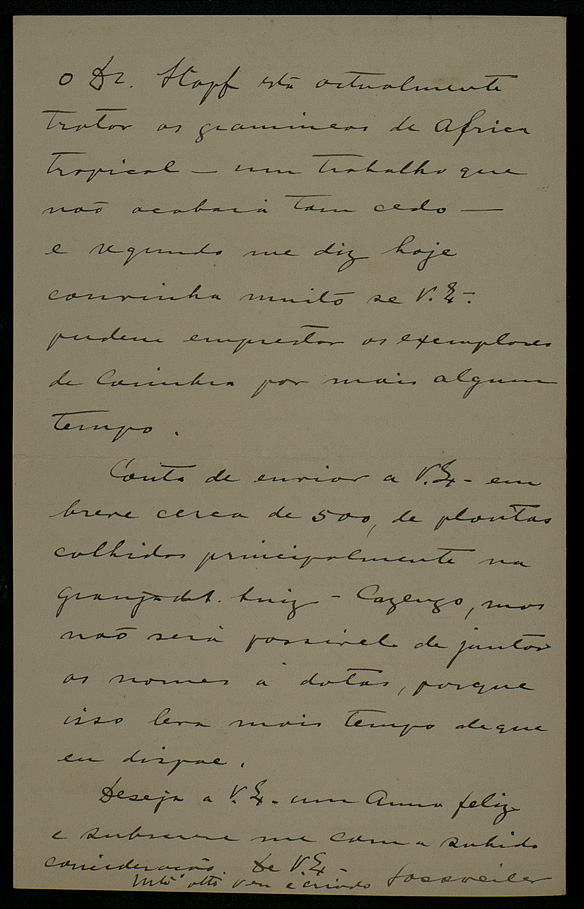 o Dr. Stapf está actualmente
tratar as gramineas de Africa
tropical — um trabalho que
não acabará tam cedo —
e segundo me diz hoje
convinha muito se V. Ex.
pudem emprestar os exemplares
de Coimbra por mais algum
tempo.
Conto de enviar a V. Ex. em
breve cerca de 500, de plantas
colhidas principalmente na
Granja de S. Luiz - Cazengo, mas
não será possivel de juntar
os nomes a datas, porque
isso leva mais tempo de que
eu dispoe.
Deseja a V. Ex. um Anno feliz
e subscreve me com a subida
consideração. De V. Ex.
Mto atto Ven e criado Gossweiler